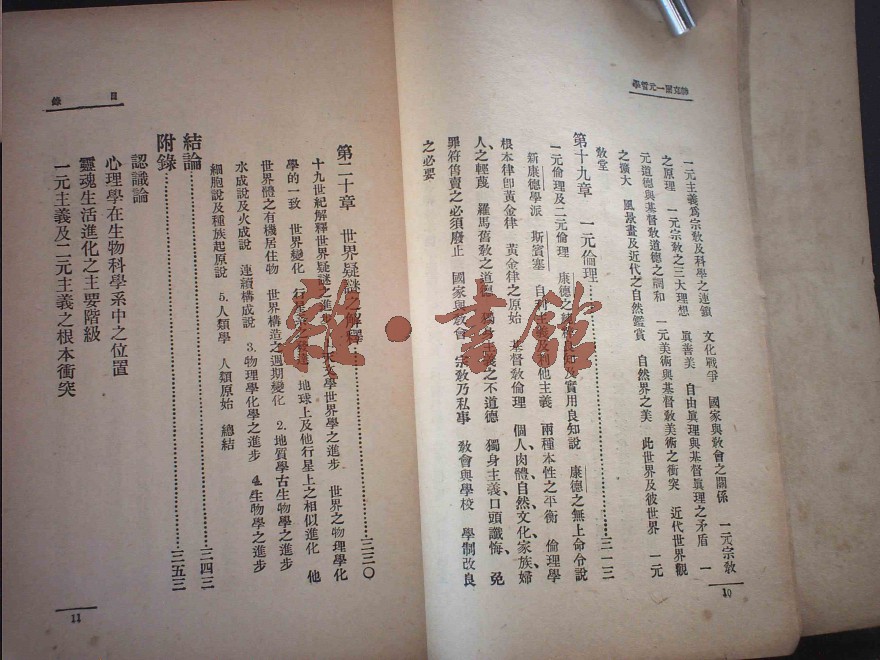 赫克爾一元哲學
一元主義爲宗敎及科學之連鎖 文化戰爭 國家與敎會之關係 一元宗敎
之原理 一元宗敎之三大理想 眞善美 自由眞理與基督眞理之矛盾 一
元道德與基督敎道德之調和 一元美術與基督敎美術之衝突 近代世界觀
之擴大 風景畫及近代之自然鑑賞 自然界之美 此世界及彼世界 一元
敎堂
第十九章 一元倫理 三一三
一元倫理及二元倫理 康德之 實用良知說 康德之無上命令說
新康德學派 斯賓塞 自利主義及利他主義 兩種本性之平衡 倫理學
根本律卽黃金律 黃金律之原始 基督敎倫理 個人、肉體、自然、文化、家族、婦
人之輕蔑 羅馬舊敎之道德 之不道德 獨身主義口頭懺悔、免
罪符售賣之必須廢止 國家與敎會 宗敎乃私事 敎會與學校 學制改良
之必要
10
目錄
第二十章 世界疑謎之解釋 三三〇
十九世紀解釋世界疑謎之進步 天文學世界學之進步 世界之物理學化
學的一致 世界變化 行星 地球上及他行星上之相似進化 他
世界體之有機居住物 世界構造之週期變化 2. 地質學古生物學之進步
水成說及火成說 連續構成說 3. 物理學化學之進步 4. 生物學之進步
細胞說及種族起原說 5. 人類學 人類原始 總結
結論 三四三
附錄 三五三
認識論
心理學在生物科學系中之位置
靈魂生活進化之主要階級
一元主義及二元主義之根本衝突
11
龍·書館